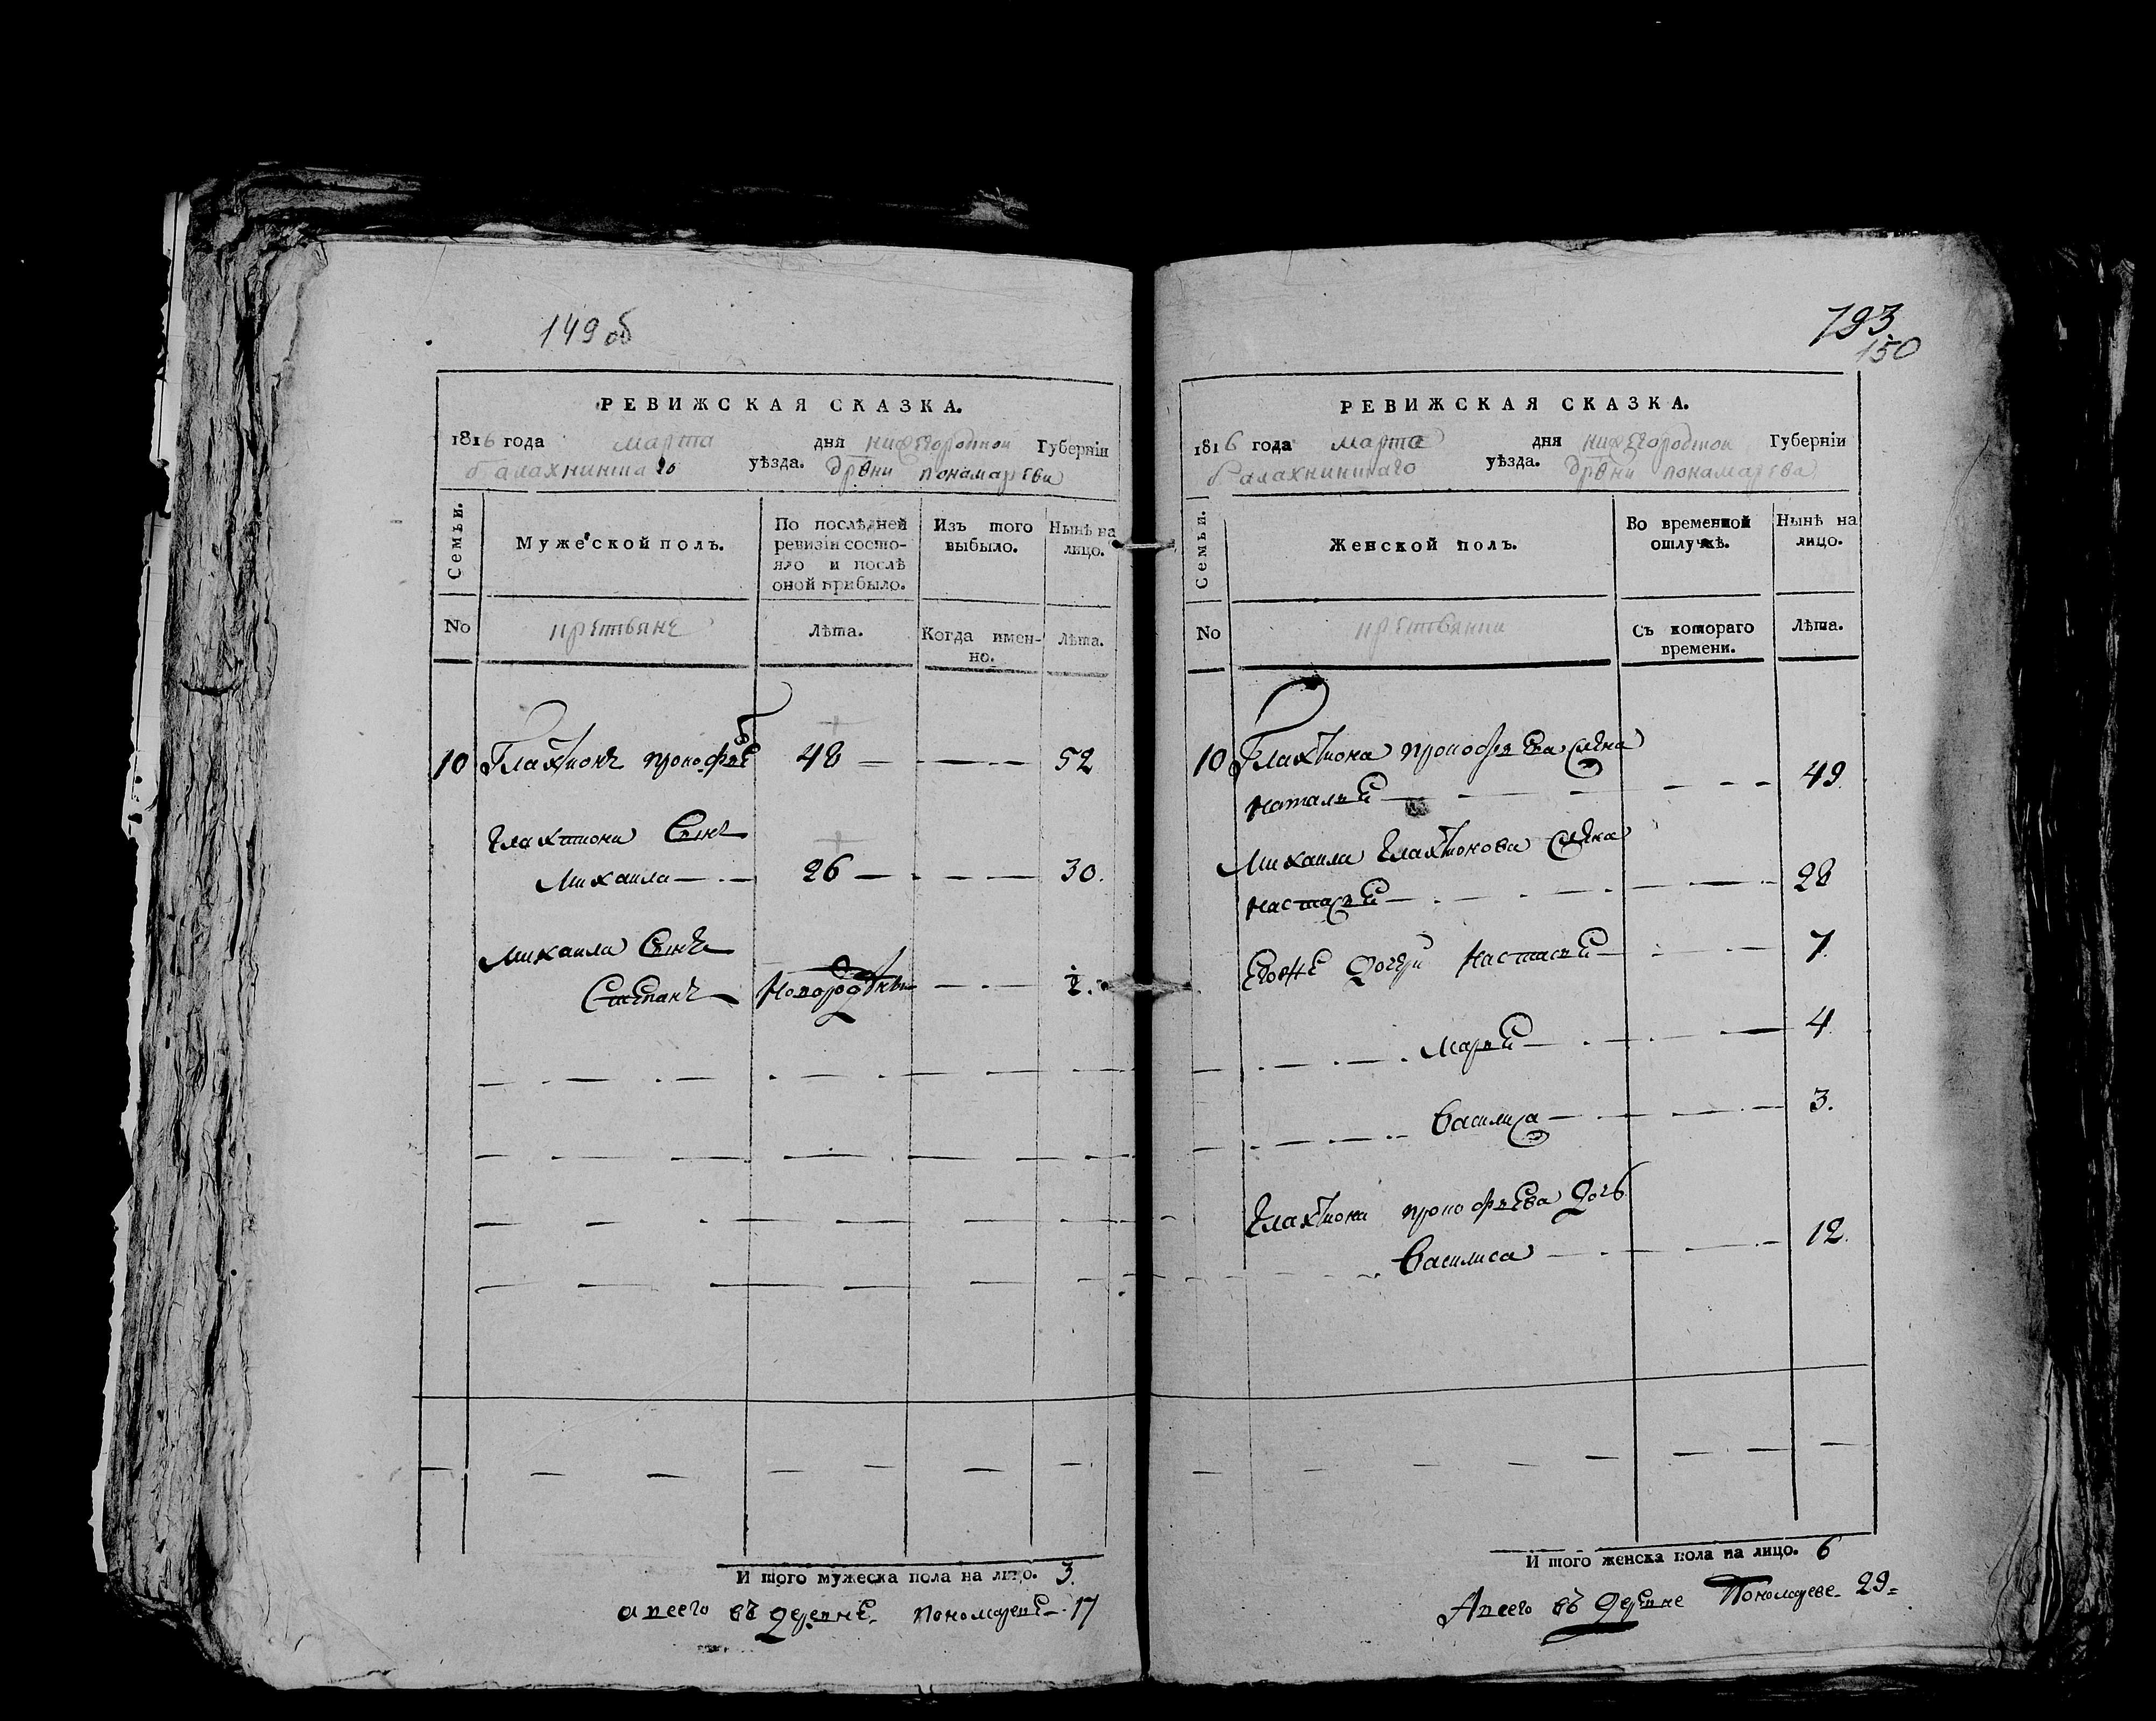 149 об
РЕВИЖСКАЯ СКАЗКА.
1816 года марта дня нижегороцкой Губерніи
балахнинскаго уѣзда. дрвни понамарева
Семьи.
Мужеской полъ.
По послѣдней ревизіи состояло и послѣ оной прибыло.
Изъ того выбыло.
Нынѣ на лицо.
No
крестьяне
Лѣта.
Когда именно.
Лѣта.
10 Глахтионъ прокофье 48 — 52
глахтиона Сынъ
Михаила — 26 — 30.
Михаила Сынъ
Степанъ новорожденъ —
И того мужеска пола на лицо. 3.
а всего въ деревне пономареве 17
793
150
РЕВИЖСКАЯ СКАЗКА.
1816 года марта дня нижегороцкой Губерніи
балахнинскаго уѣзда. дрвни понамарева
Семьи.
Женской полъ.
Во временной отлучкѣ.
Нынѣ на лицо.
No
крестьянки
Съ котораго времени.
Лѣта.
10 Глахтиона прокофьева жена
наталья — 49.
Михаила глахтионова жена
настасья — 28
Евоже дочери настасья — 7.
марья — 4.
василиса — 3.
глахтиона прокофьева дочь
василиса — 12.
И того женска пола на лицо. 6
А всего въ деревне Пономареве 29=